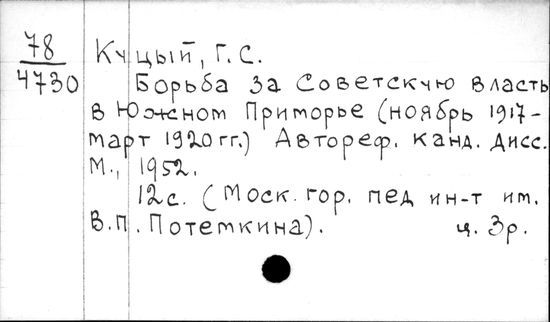 78
4730
Куцый, Г.С.
Борьба за Советскую власть
в Южном Приморье (ноябрь 1917-
март 1920 гг.) Автореф. канд. дисс.
М., 1952.
12с. (Моск. гор. пед ин-т им.
В.П. Потемкина). ц. 3р.